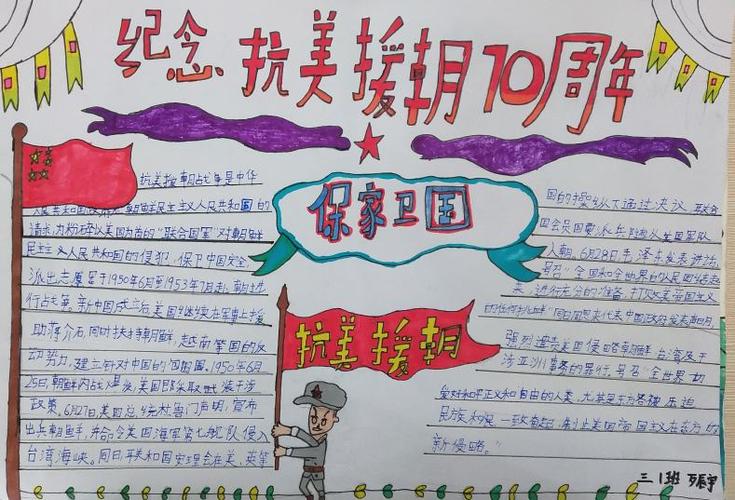 纪念抗美援朝70周年
保家卫国
抗美援朝
抗美援朝战争是中华
人民共和国应朝鲜民主主义人民共和国的
请求,为粉碎以美国为首的“联合国军”对朝鲜
民主主义人民共和国的侵犯,保卫中国安全
派出志愿军于1950年6月至1953年7月赴朝进
行战争。新中国成立后,美国继续在军事上援
助蒋介石,同时扶持朝鲜,越南等国的反
动势力,建立针对中国的包围圈。1950年6月
25日,朝鲜内战爆发,美国即采取武装干涉
政策。6月27日,美国总统杜鲁门声明,宣布
出兵朝鲜,并命令美国海军第七舰队侵入
台湾海峡。同日,联合国安理会在美、英等
国的操纵下通过决议
会员国
入朝。6月28日,毛泽东发表讲话,
号召“全国和全世界的人民团结起
来,进行充分的准备,打败美帝国主义
的任何挑衅”同日周恩来代表中国政府发表声明,
强烈谴责美国侵略朝鲜、台湾及干
涉亚洲事务的罪行,号召“全世界一切
爱好和平正义和自由的人类,尤其是东方各被压迫
民族和人民,一致奋起,制止美国帝国主义在东方的
新侵略。”
三1班